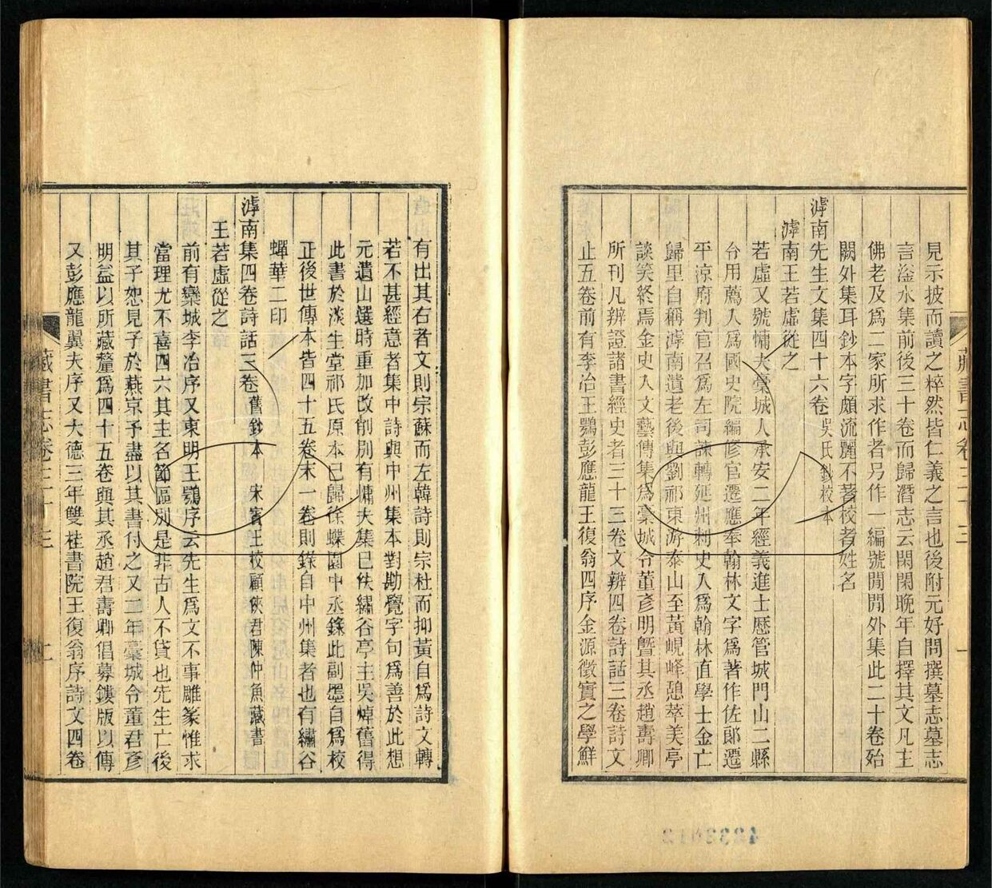 見示披而讀之粹然皆仁義之言也後附元好問撰墓志墓志
言滏水集前後三十卷而歸潛志云閑閑晚年自擇其文凡主
佛老及爲二家所求作者另作一編號閒閒外集此二十卷殆
闕外集耳鈔本字頗流麗不著校者姓名
滹南先生文集四十六卷吳氏鈔校本
滹南王若虛從之
若虛又號慵夫藁城人承安二年經義進士歴管城門山二縣
台用薦人爲國史院編修官遷應奉翰林文字爲著作佐郞遷
平涼府判官召爲左司諫轉延州刺史入爲翰林直學士金亡
歸里自稱滹南遺老後與劉祁東游泰山至黃峴峰憩萃美亭
談笑終焉金史入文藝傳集爲藁城令董彥明曁其丞趙壽卿
所刊凡辨證諸書經史者三十三卷文辨四卷詩話三卷詩文
止五卷前有李冶王鶚彭應龍王復翁四序金源徵實之學鮮
藏書志卷三十三
有出其右者文則宗蘇而左韓詩則宗杜而抑黃自爲詩文轉
若不甚經意者集中詩與中州集本對勘覺字句爲善於此想
元遺山選時重加改削別有慵夫集已佚繡谷亭主吳焯舊得
此書於淡生堂祁氏原本已歸徐蝶園中丞錄此副墨自爲校
正後世傳本皆四十五卷末一卷則錄自中州集者也有繡谷
蟬華二印
滹南集四卷詩話三卷舊鈔本 宋賓王校顧俠君陳仲魚藏書
王若虛從之
前有欒城李冶序又東明王鶚序云先生爲文不事雕篆惟求
當理尤不喜四六其主名節區別是非古人不貸也先生亡後
其子恕見予於燕京予盡以其書付之又二年藁城令董君彥
明益以所藏釐爲四十五卷與其丞趙君壽卿倡募鏤版以傳
又彭應龍翼夫序又大德三年雙桂書院王復翁序詩文四卷
藏書志卷三十三